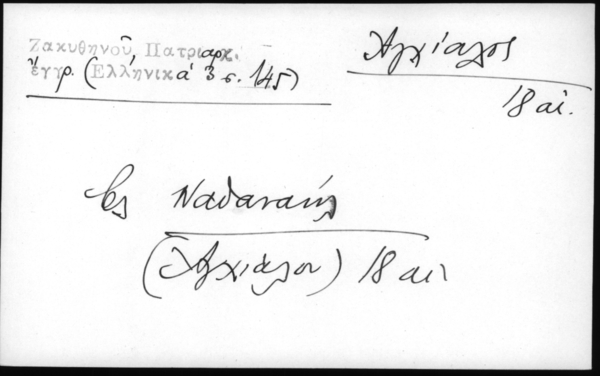 Ζακυθηνοῦ, Πατριαρχ.
ἔγγρ. (Ἑλληνικὰ 3 σ. 145)
Ἀγχίαλος
18 αἰ.
Ναθαναὴλ
(Ἀγχιάλου) 18 αἰ.